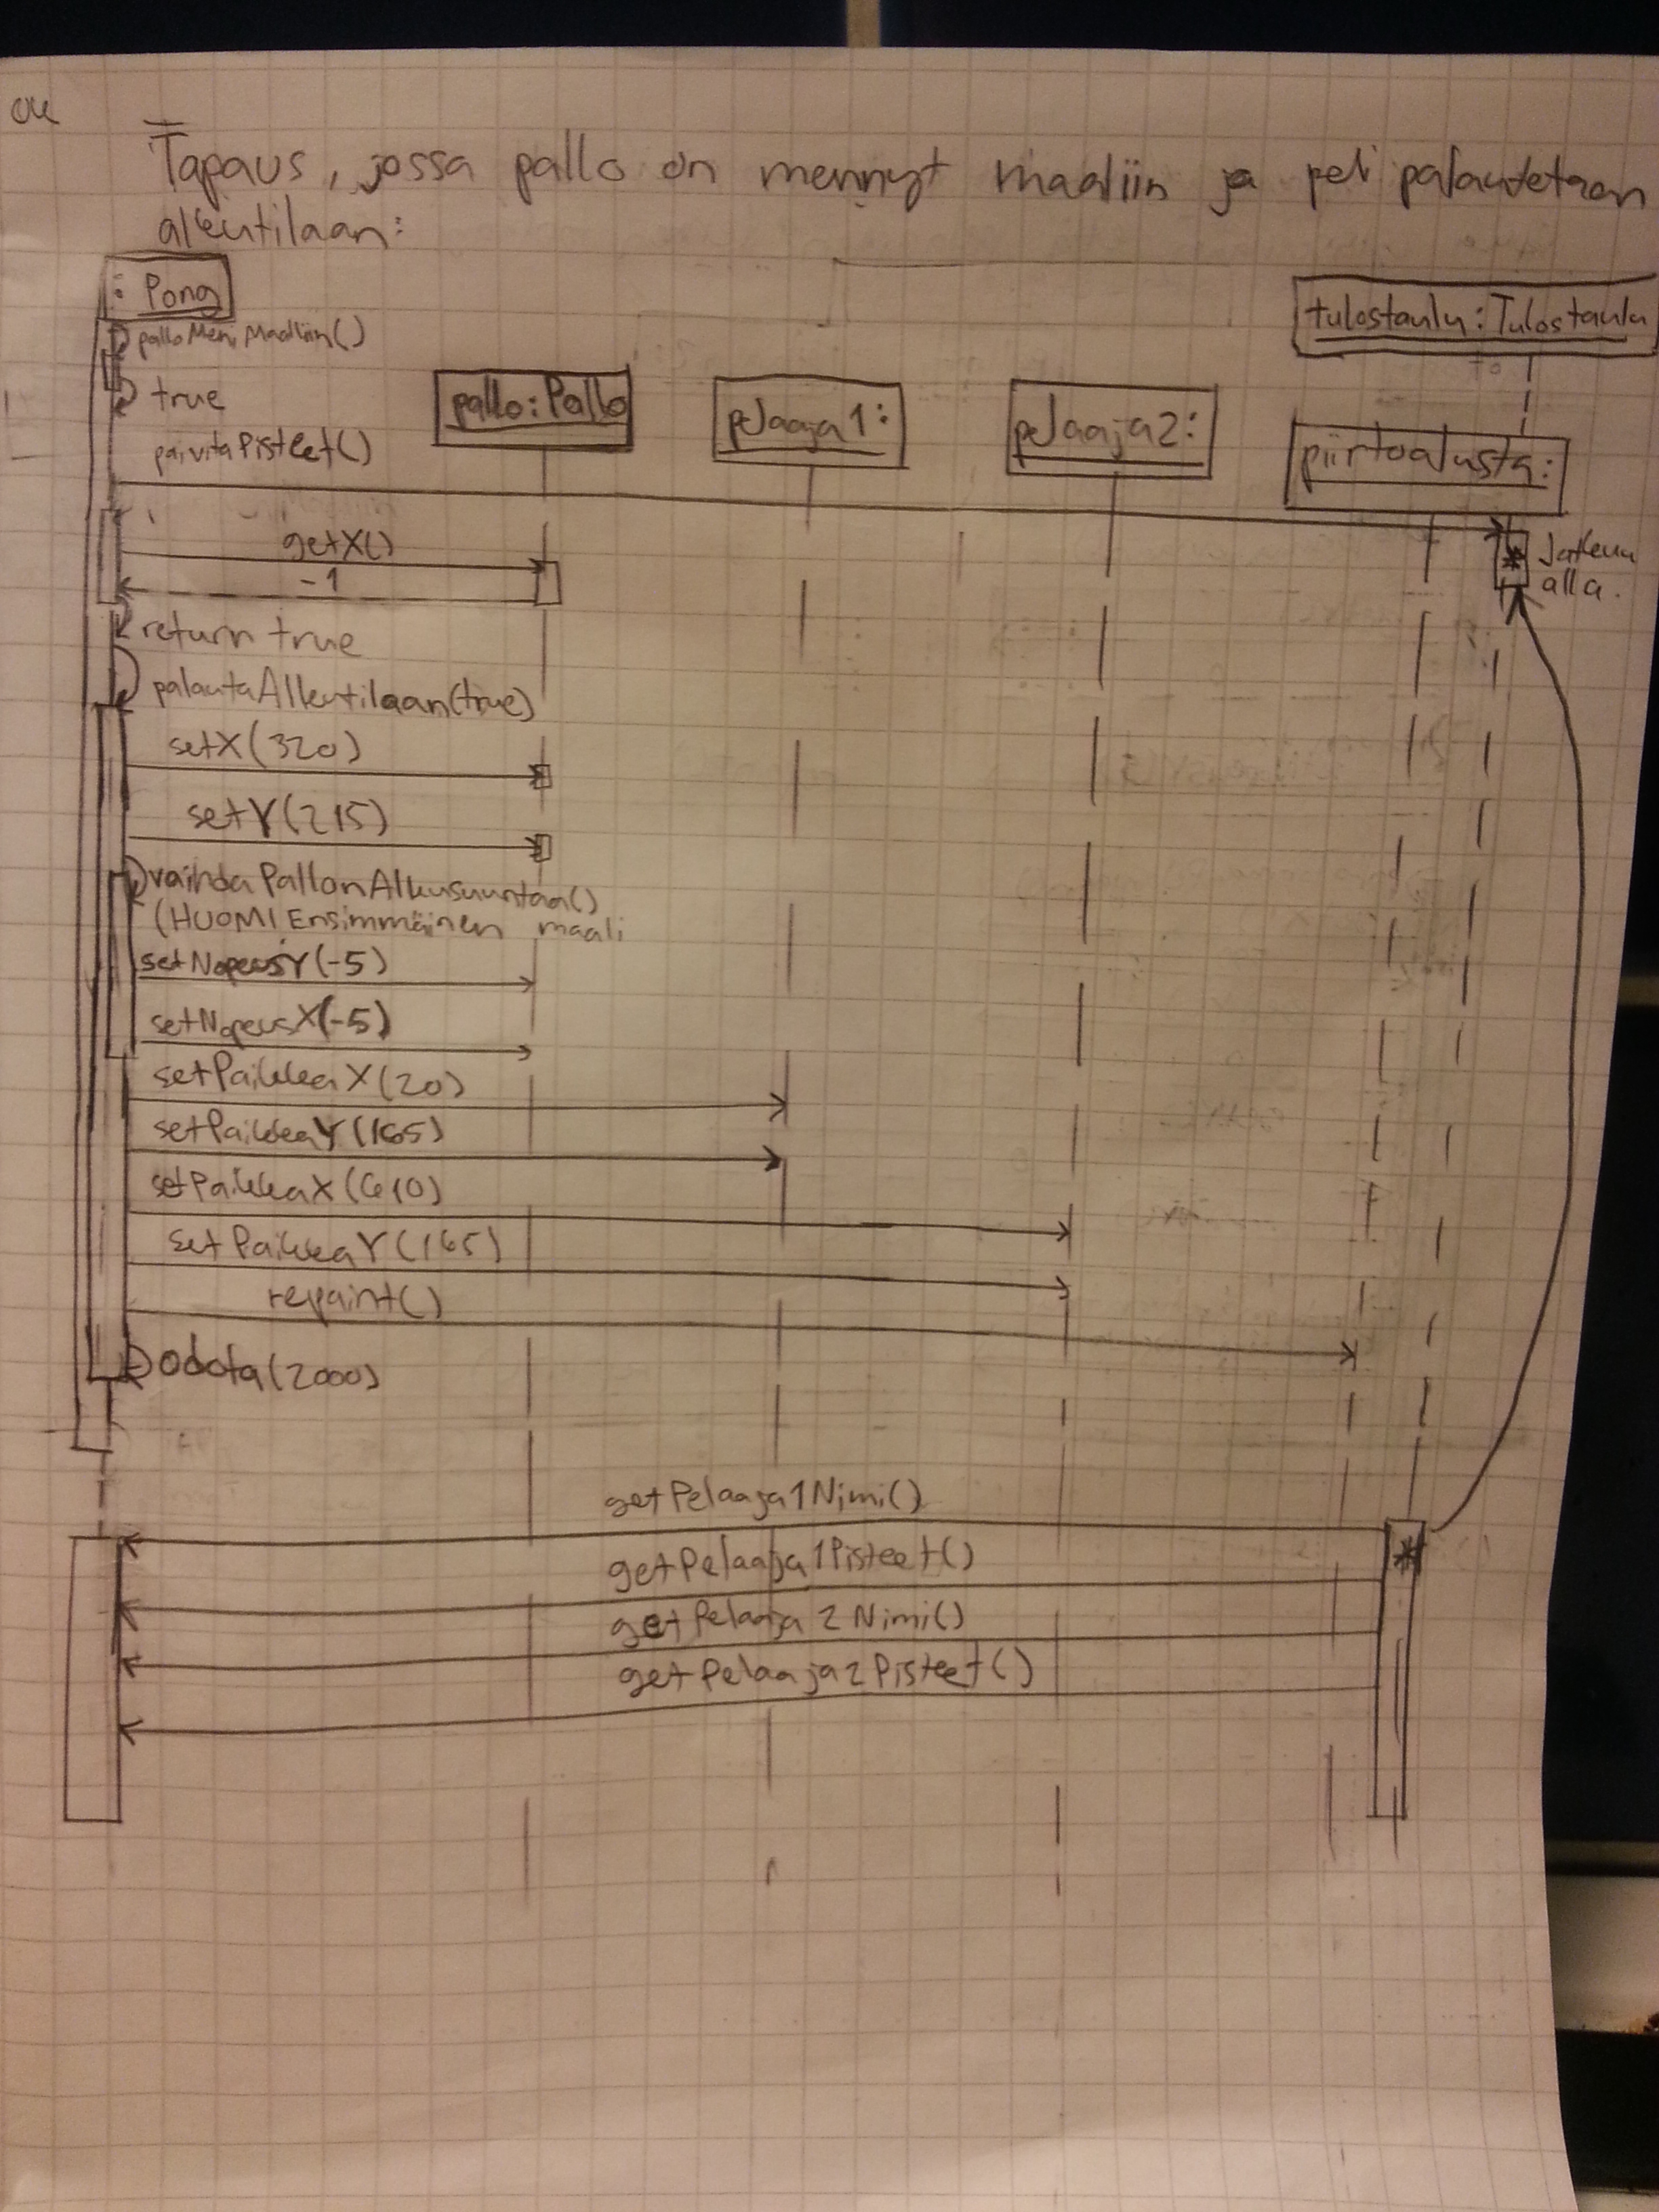 Tapaus, jossa pallo on mennyt maaliin ja peli palautetaan
alkutilaan:
: Pong
tulostaulu: Tulostaulu
palloMeniMaaliin()
pallo: Pallo
pelaaja1:
pelaaja2:
piirtoalusta:
true
paivitaPisteet()
getX()
* Jatkuu
alla.
-1
return true
palautaAlkutilaan(true)
setX(320)
setY(215)
vaihdaPallonAlkusuuntaa()
(HUOM! Ensimmäinen maali
setNopeusY(-5)
setNopeusX(-5)
setPaikkaX(20)
setPaikkaY(165)
setPaikkaX(610)
setPaikkaY(165)
repaint()
odota(2000)
getPelaaja1Nimi()
*
getPelaaja1Pisteet()
getPelaaja2Nimi()
getPelaaja2Pisteet()